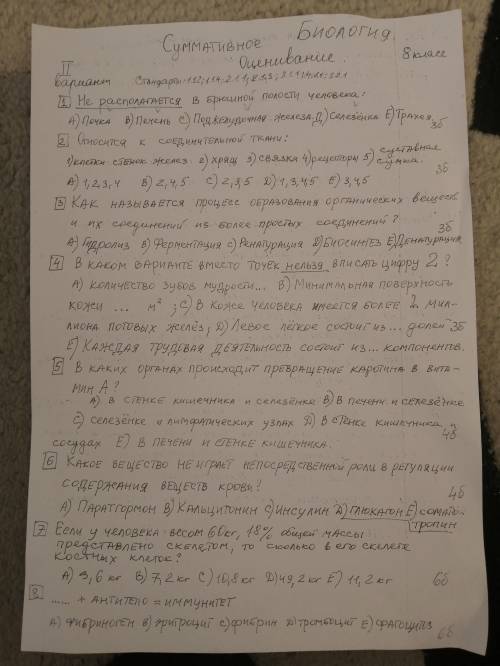 Биология
Суммативное
Оценивание.
8 класс
II
вариант
Стандарты:
1 Не располагается в брюшной полости человека:
А) Почка В) Печень С) Поджелудочная железа Д) Селезёнка Е) Трахея 3б
2 Относится к соединительной ткани:
1) клетки стенок желез. 2) хрящ 3) связки 4) рецепторы 5) суставная сумка.
А) 1,2,3,4 В) 2,4,5 С) 2,3,5 Д) 1,3,4,5 Е) 3,4,5 3б
3 Как называется процесс образования органических веществ
и их соединений из более простых соединений? 3б
А) Гидролиз В) Ферментация С) Ренатурация Д) Биосинтез Е) Денатурация
4 В каком варианте вместо точек нельзя вписать цифру 2?
А) количество зубов мудрости... В) Минимальная поверхность
кожи ... м²; С) В коже человека имеется более 2 мил-
лиона потовых желёз; Д) Левое лёгкое состоит из... долей 3б
Е) Каждая трудовая деятельность состоит из... компонентов.
5 В каких органах происходит превращение каротина в вита-
мин А?
А) в стенке кишечника и селезёнке В) В печени и селезёнке
С) селезёнке и лимфатических узлах Д) В стенке кишечника и
сосудах Е) В печени и стенке кишечника. 4б
6 Какое вещество не играет непосредственной роли в регуляции
содержания веществ крови? 4б
А) Паратгормон В) Кальцитонин С) инсулин Д) глюкагон Е) сомато-
тропин
7 Если у человека весом 60 кг, 18% общей массы
представлено скелетом, то сколько в его скелете
костных клеток?
А) 3,6 кг В) 7,2 кг С) 10,8 кг Д) 49,2 кг Е) 11,2 кг 6б
8
...... + антитело = иммунитет
А) фибриноген В) эритроцит С) фибрин Д) тромбоцит Е) фагоцитоз 6б